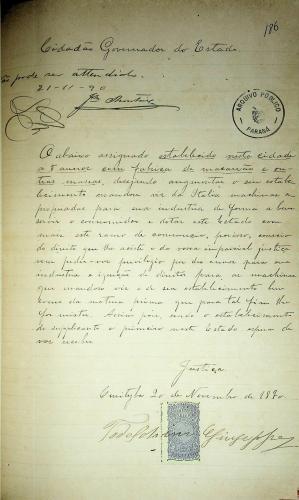 186
Cidadão Governador do Estado.
não pode ser attendido.
21-11-90
ARQUIVO PÚBLICO
PARANÁ
O abaixo assignado estabelecido nesta cidade
a 8 annos com fabrica de macarrão e ou-
tras massas, desejando augmentar o seu estabe-
lecimento mandou vir da Italia machinas a-
propriadas para sua industria, de forma a bem
servir o consumidor e dotar este Estado com
mais este ramo de commercio, porisso, conscio
do direito que lhe assiste e da vossa imparcial justiça
vem pedir-vos privilegio por dez annos para sua
industria e isenção de direitos para as machinas
que mandou vir e de seu estabelecimento bem
como da materia prima que para tal fim lhe
for mister. Assim pois, sendo o estabelecimento
do supplicante o primeiro neste Estado espera de
vos receber
Justiça
Curityba 20 de Novembro de 1890.
Todeschini Giuseppe